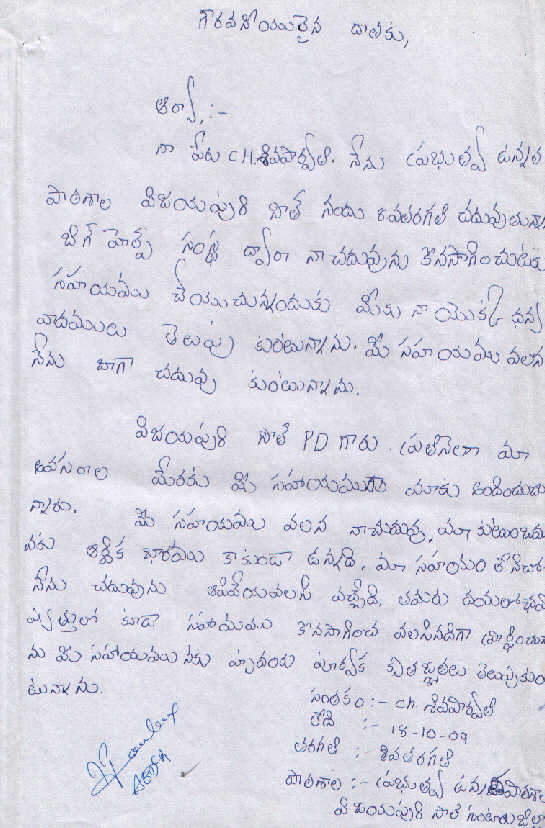 గౌరవనీయులైన దాతకు,
ఆర్యా,:-
నా పేరు CH.శివపార్వతి. నేను ప్రభుత్వ ఉన్నత
పాఠశాల విజయపురి సౌత్ నందు 8వతరగతి చదువుతున్నాను
బిగ్ హెల్ప్ సంస్థ ద్వారా నాచదువును కొనసాగించుటకు
సహాయము చేయుచున్నందుకు మీకు నా యొక్క ధన్య
వాదములు తెలుపు కుంటున్నాను. మీ సహాయము వలన
నేను బాగా చదువు కుంటున్నాను.
విజయపురి సౌత్ PD గారు. ప్రతినెలా మా
అవసరాల మేరకు మీ సహాయము మాకు అందించు
న్నారు.
మీ సహాయము వలన నాచదువు, మా కుటుంబము
నకు ఆర్థిక భారము కాకుండా ఉన్నది. మీ సహాయం లేనిచో
నేను చదువును ఆపివేయవలసి వచ్చేది. తమరు దయతో
ష్యత్తులో కూడా సహాయము కొనసాగించ వలసినదిగా ప్రార్థించు
ను మీ సహాయమునకు హృదయ పూర్వక కృతజ్ఞతలు తెలుపుకుం
టున్నాను.
సంతకం :- ch. శివపార్వతి
తేది :- 18-10-09
తరగతి :- 8వతరగతి
పాఠశాల :- ప్రభుత్వ ఉన్నత పాఠశాల
విజయపురి సౌత్ గుంటూరుజిల్లా